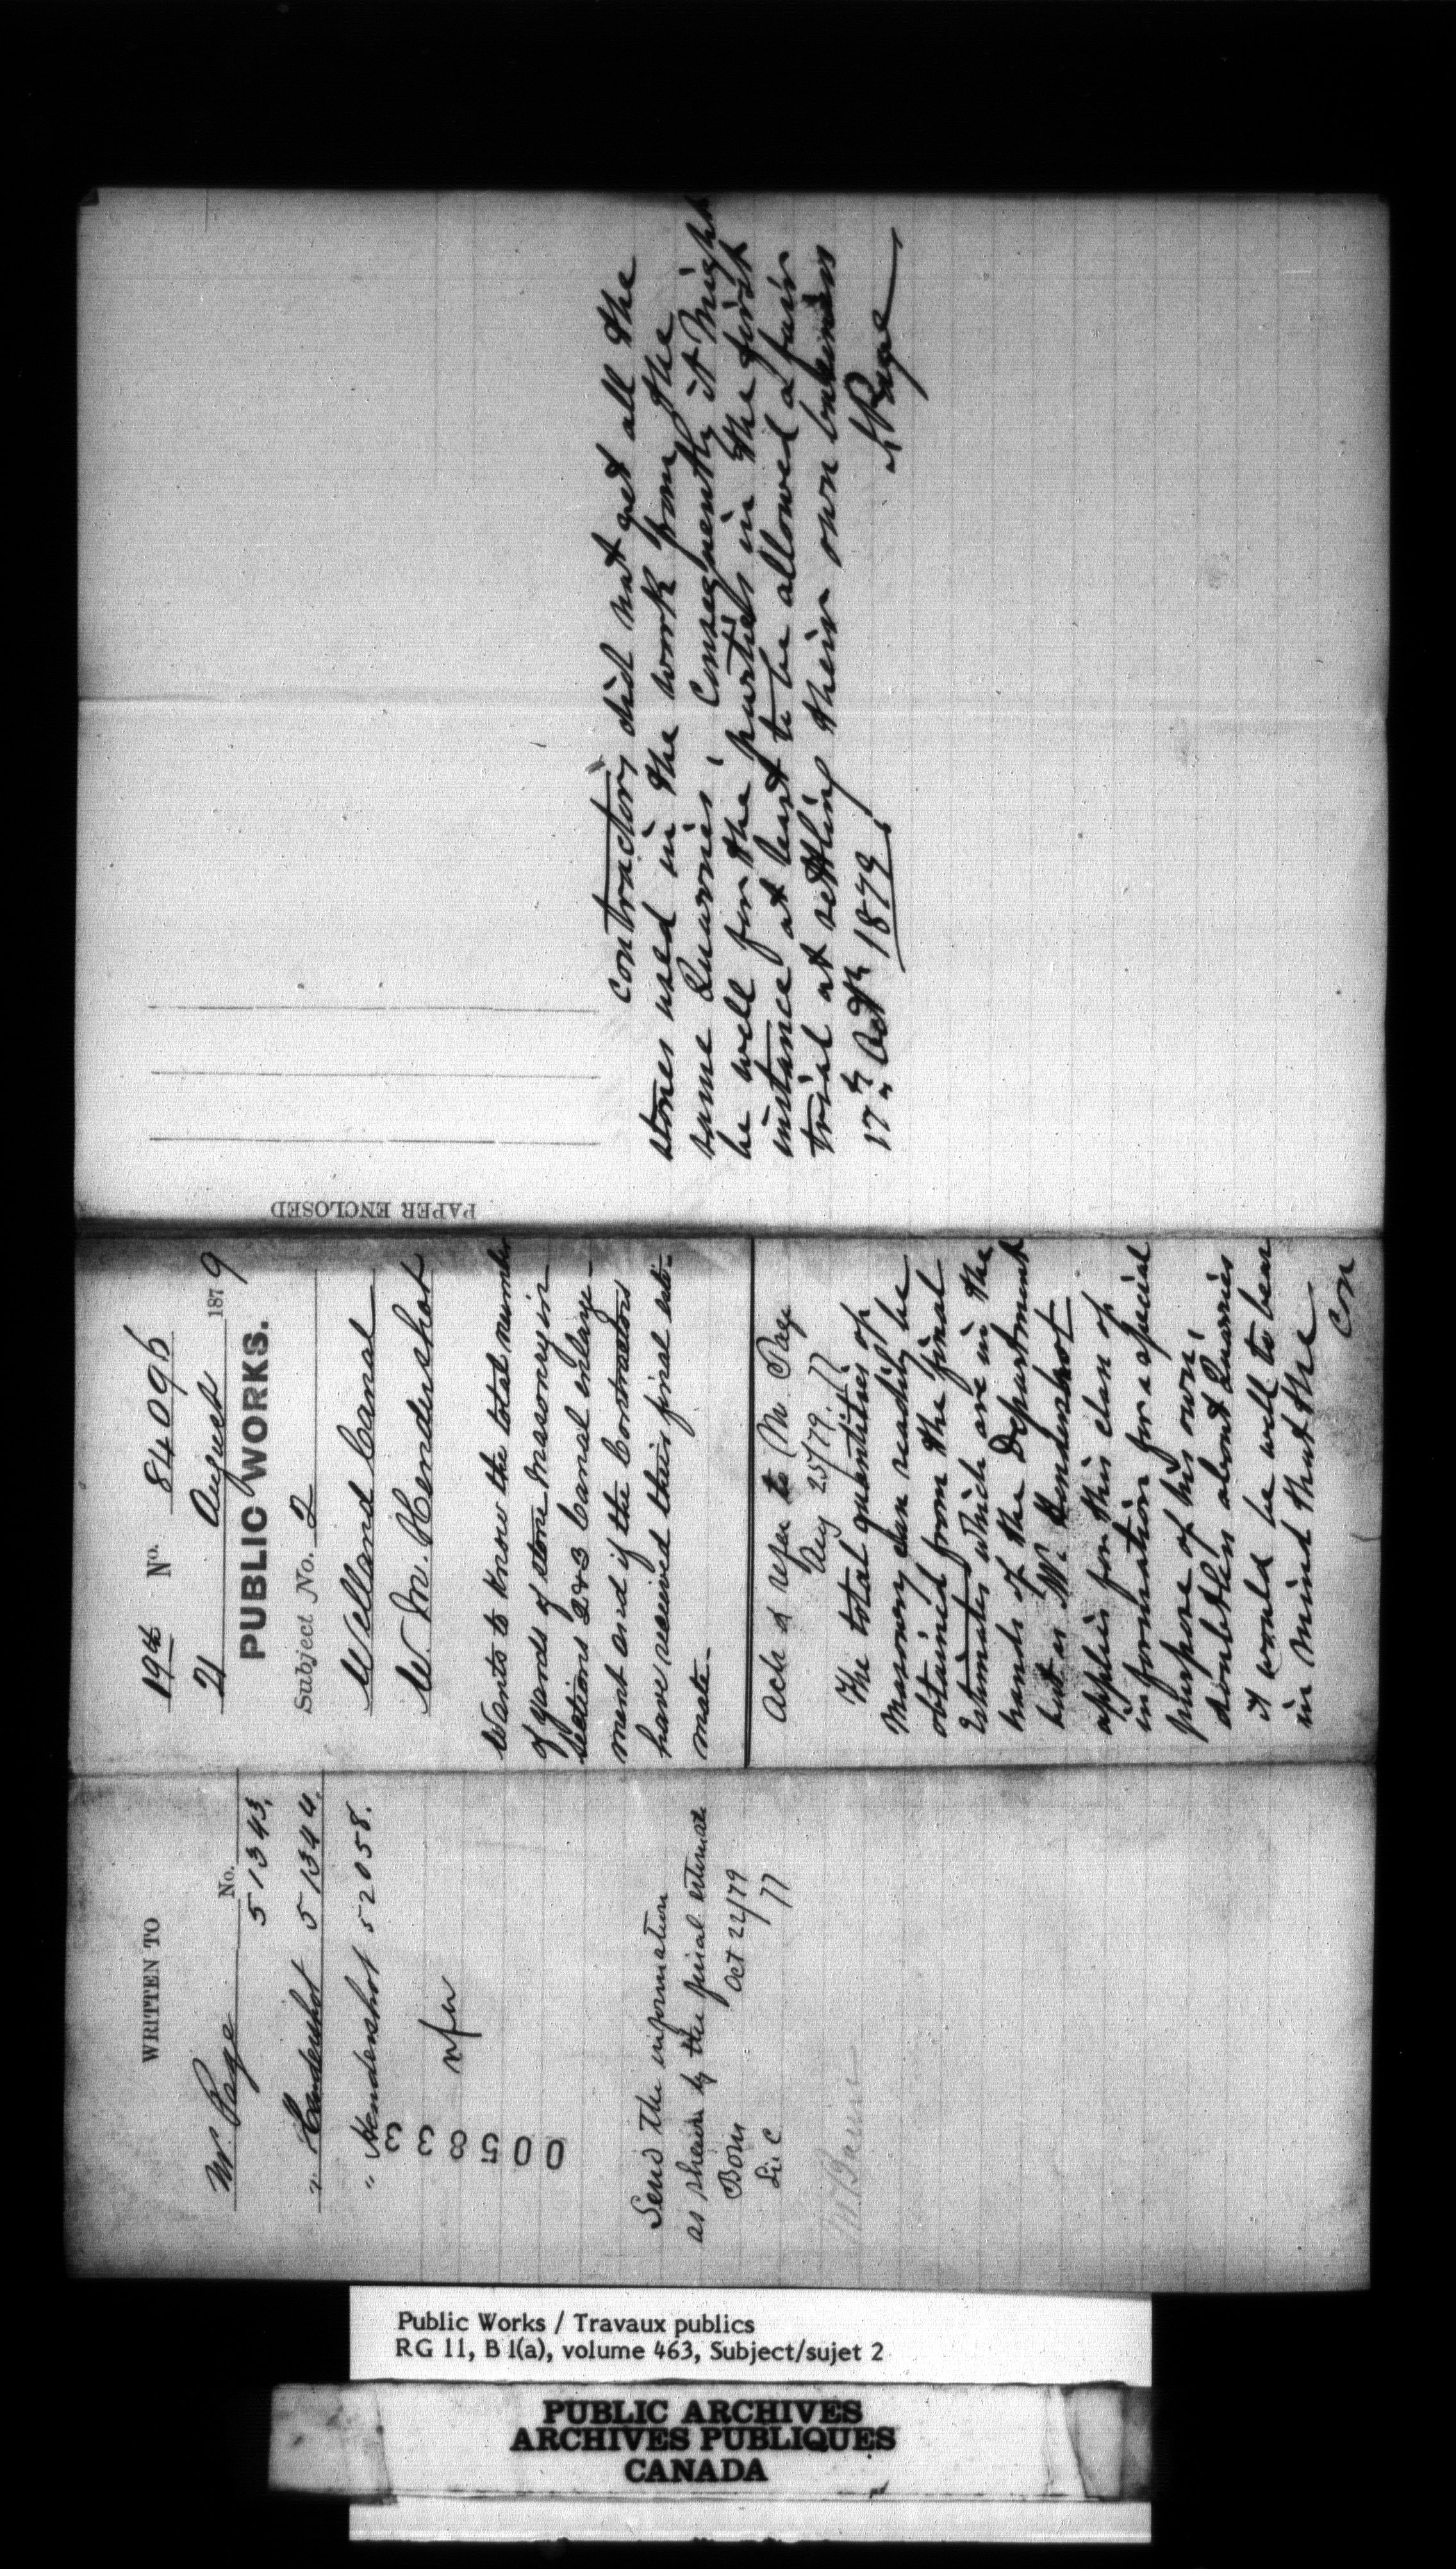 WRITTEN TO
Mr. Page No.
51343.
" Hendershot 51344.
" Hendershot 52058.
005833
Send the information
as shewn by the final estimate
Oct 22/79
19th No. 84096
21 August 1879
PUBLIC WORKS.
Subject No. 2
Welland Canal
W. M. Hendershot
Wants to know the total number
of yards of stone masonry in
sections 2 & 3 Canal enlarge-
ment and if the Contractors
have received their final esti-
mate.
Ack & refer to Mr. Page
Aug 25/79.
The total quantities of
Masonry can readily be
obtained from the final
Estimates which are in the
hands of the Department
but as Mr. Hendershot
applies for this class of
information for a special
purpose of his own,
doubtless about Quarries
it would be well to bear
in mind that the
con
PAPER ENCLOSED
contractors did not get all the
stones used in the work from the
same Quarries, Consequently it might
be well for the parties in the first
instance at least to be allowed a fair
trial at settling their own business
17th Octr 1879
J Page
Public Works / Travaux publics
RG 11, B 1(a), volume 463, Subject/sujet 2
PUBLIC ARCHIVES
ARCHIVES PUBLIQUES
CANADA